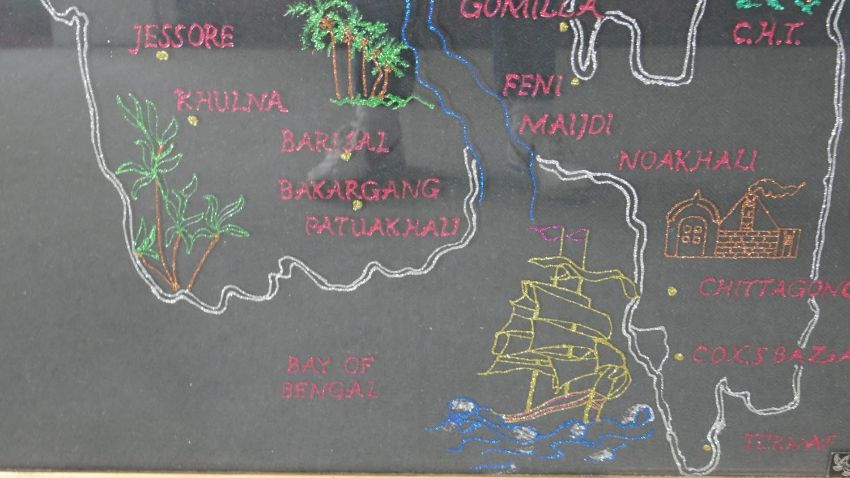 GOMILLA
JESSORE
C.H.T.
FENI
KHULNA
MAIJDI
BARISAL
NOAKHALI
BAKARGANG
PATUAKHALI
CHITTAGONG
COX,S BAZA
BAY OF
BENGAL
TEKNAF